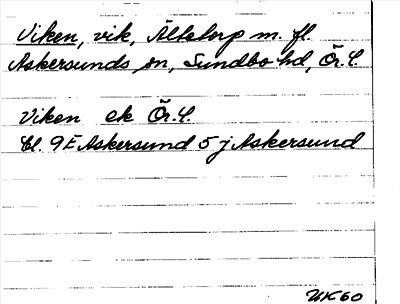 Viken, vik, Ältstorp m. fl.
Askersunds sn, Sundbo hd, Ör. l.
Viken ek Ör. l.
Bl. 9E Askersund 5 j Askersund
UK60